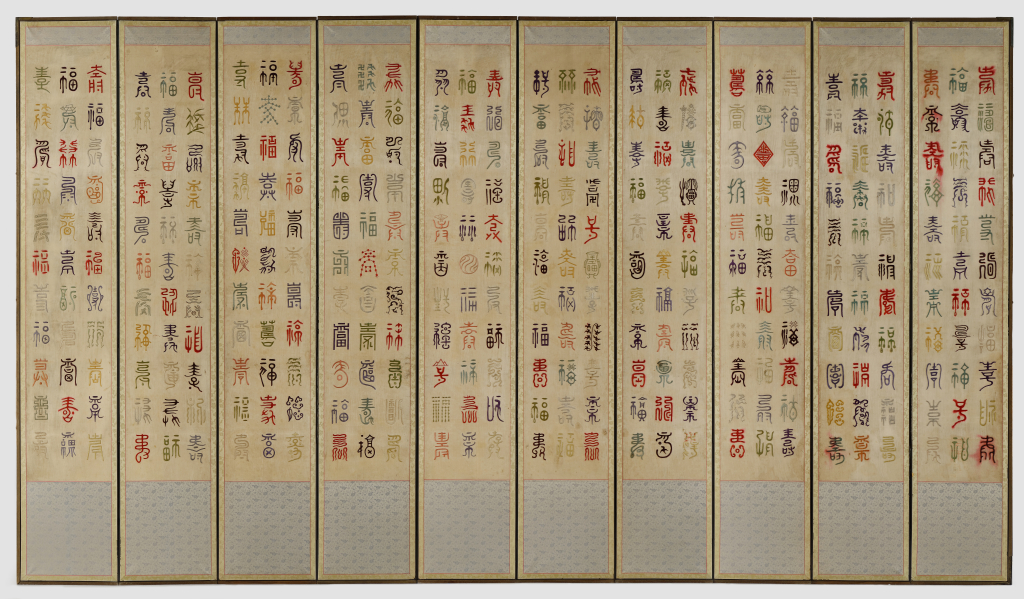 壽福壽福壽福壽福壽福壽
福壽福壽福壽福壽福壽福
壽福壽福壽福壽福壽福壽
壽福壽福壽福壽福壽福壽
福壽福壽福壽福壽福壽福
壽福壽福壽福壽福壽福壽
壽福壽福壽福壽福壽福壽
福壽福壽福壽福壽福壽福
壽福壽福壽福壽福壽福壽
壽福壽福壽福壽福壽福壽
福壽福壽福壽福壽福壽福
壽福壽福壽福壽福壽福壽
壽福壽福壽福壽福壽福壽
福壽福壽福壽福壽福壽福
壽福壽福壽福壽福壽福壽
壽福壽福壽福壽福壽福壽
福壽福壽福壽福壽福壽福
壽福壽福壽福壽福壽福壽
壽福壽福壽福壽福壽福壽
福壽福壽福壽福壽福壽福
壽福壽福壽福壽福壽福壽
壽福壽福壽福壽福壽福壽
福壽福壽福壽福壽福壽福
壽福壽福壽福壽福壽福壽
壽福壽福壽福壽福壽福壽
福壽福壽福壽福壽福壽福
壽福壽福壽福壽福壽福壽
壽福壽福壽福壽福壽福壽
福壽福壽福壽福壽福壽福
壽福壽福壽福壽福壽福壽